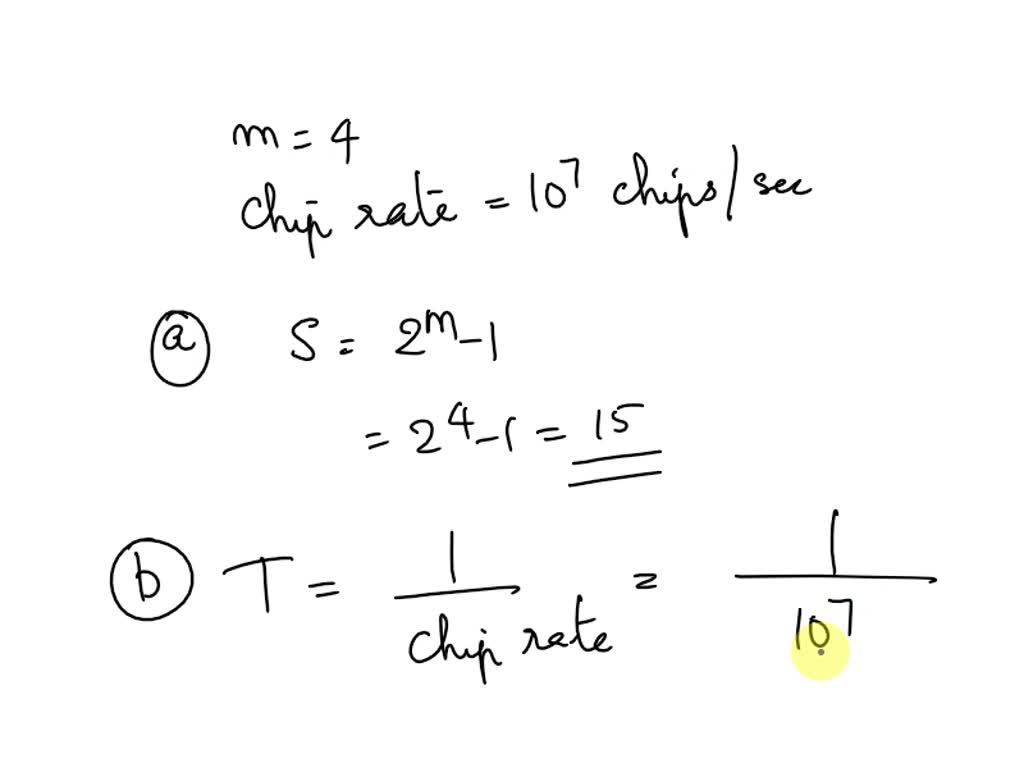 m = 4
chip rate = 10⁷ chips/sec
(a) S = 2ᵐ - 1
= 2⁴ - 1 = 15
(b) T = 1/chip rate = 1/10⁷